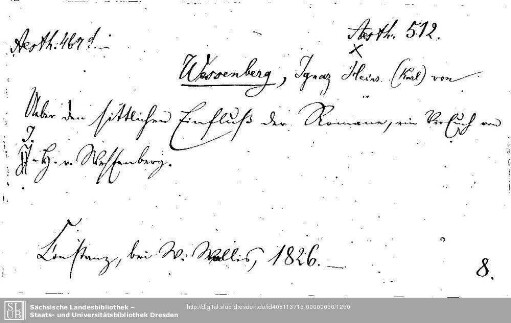 Aesth. 467 d.
Aesth. 512.
Wessenberg, Ignaz Heinr. (Karl) von
Ueber den sittlichen Einfluß der Romane, ein Versuch von
I. H. v. Wessenberg.
Constanz, bei W. Wallis, 1826.
8.
Sächsische Landesbibliothek –
Staats- und Universitätsbibliothek Dresden